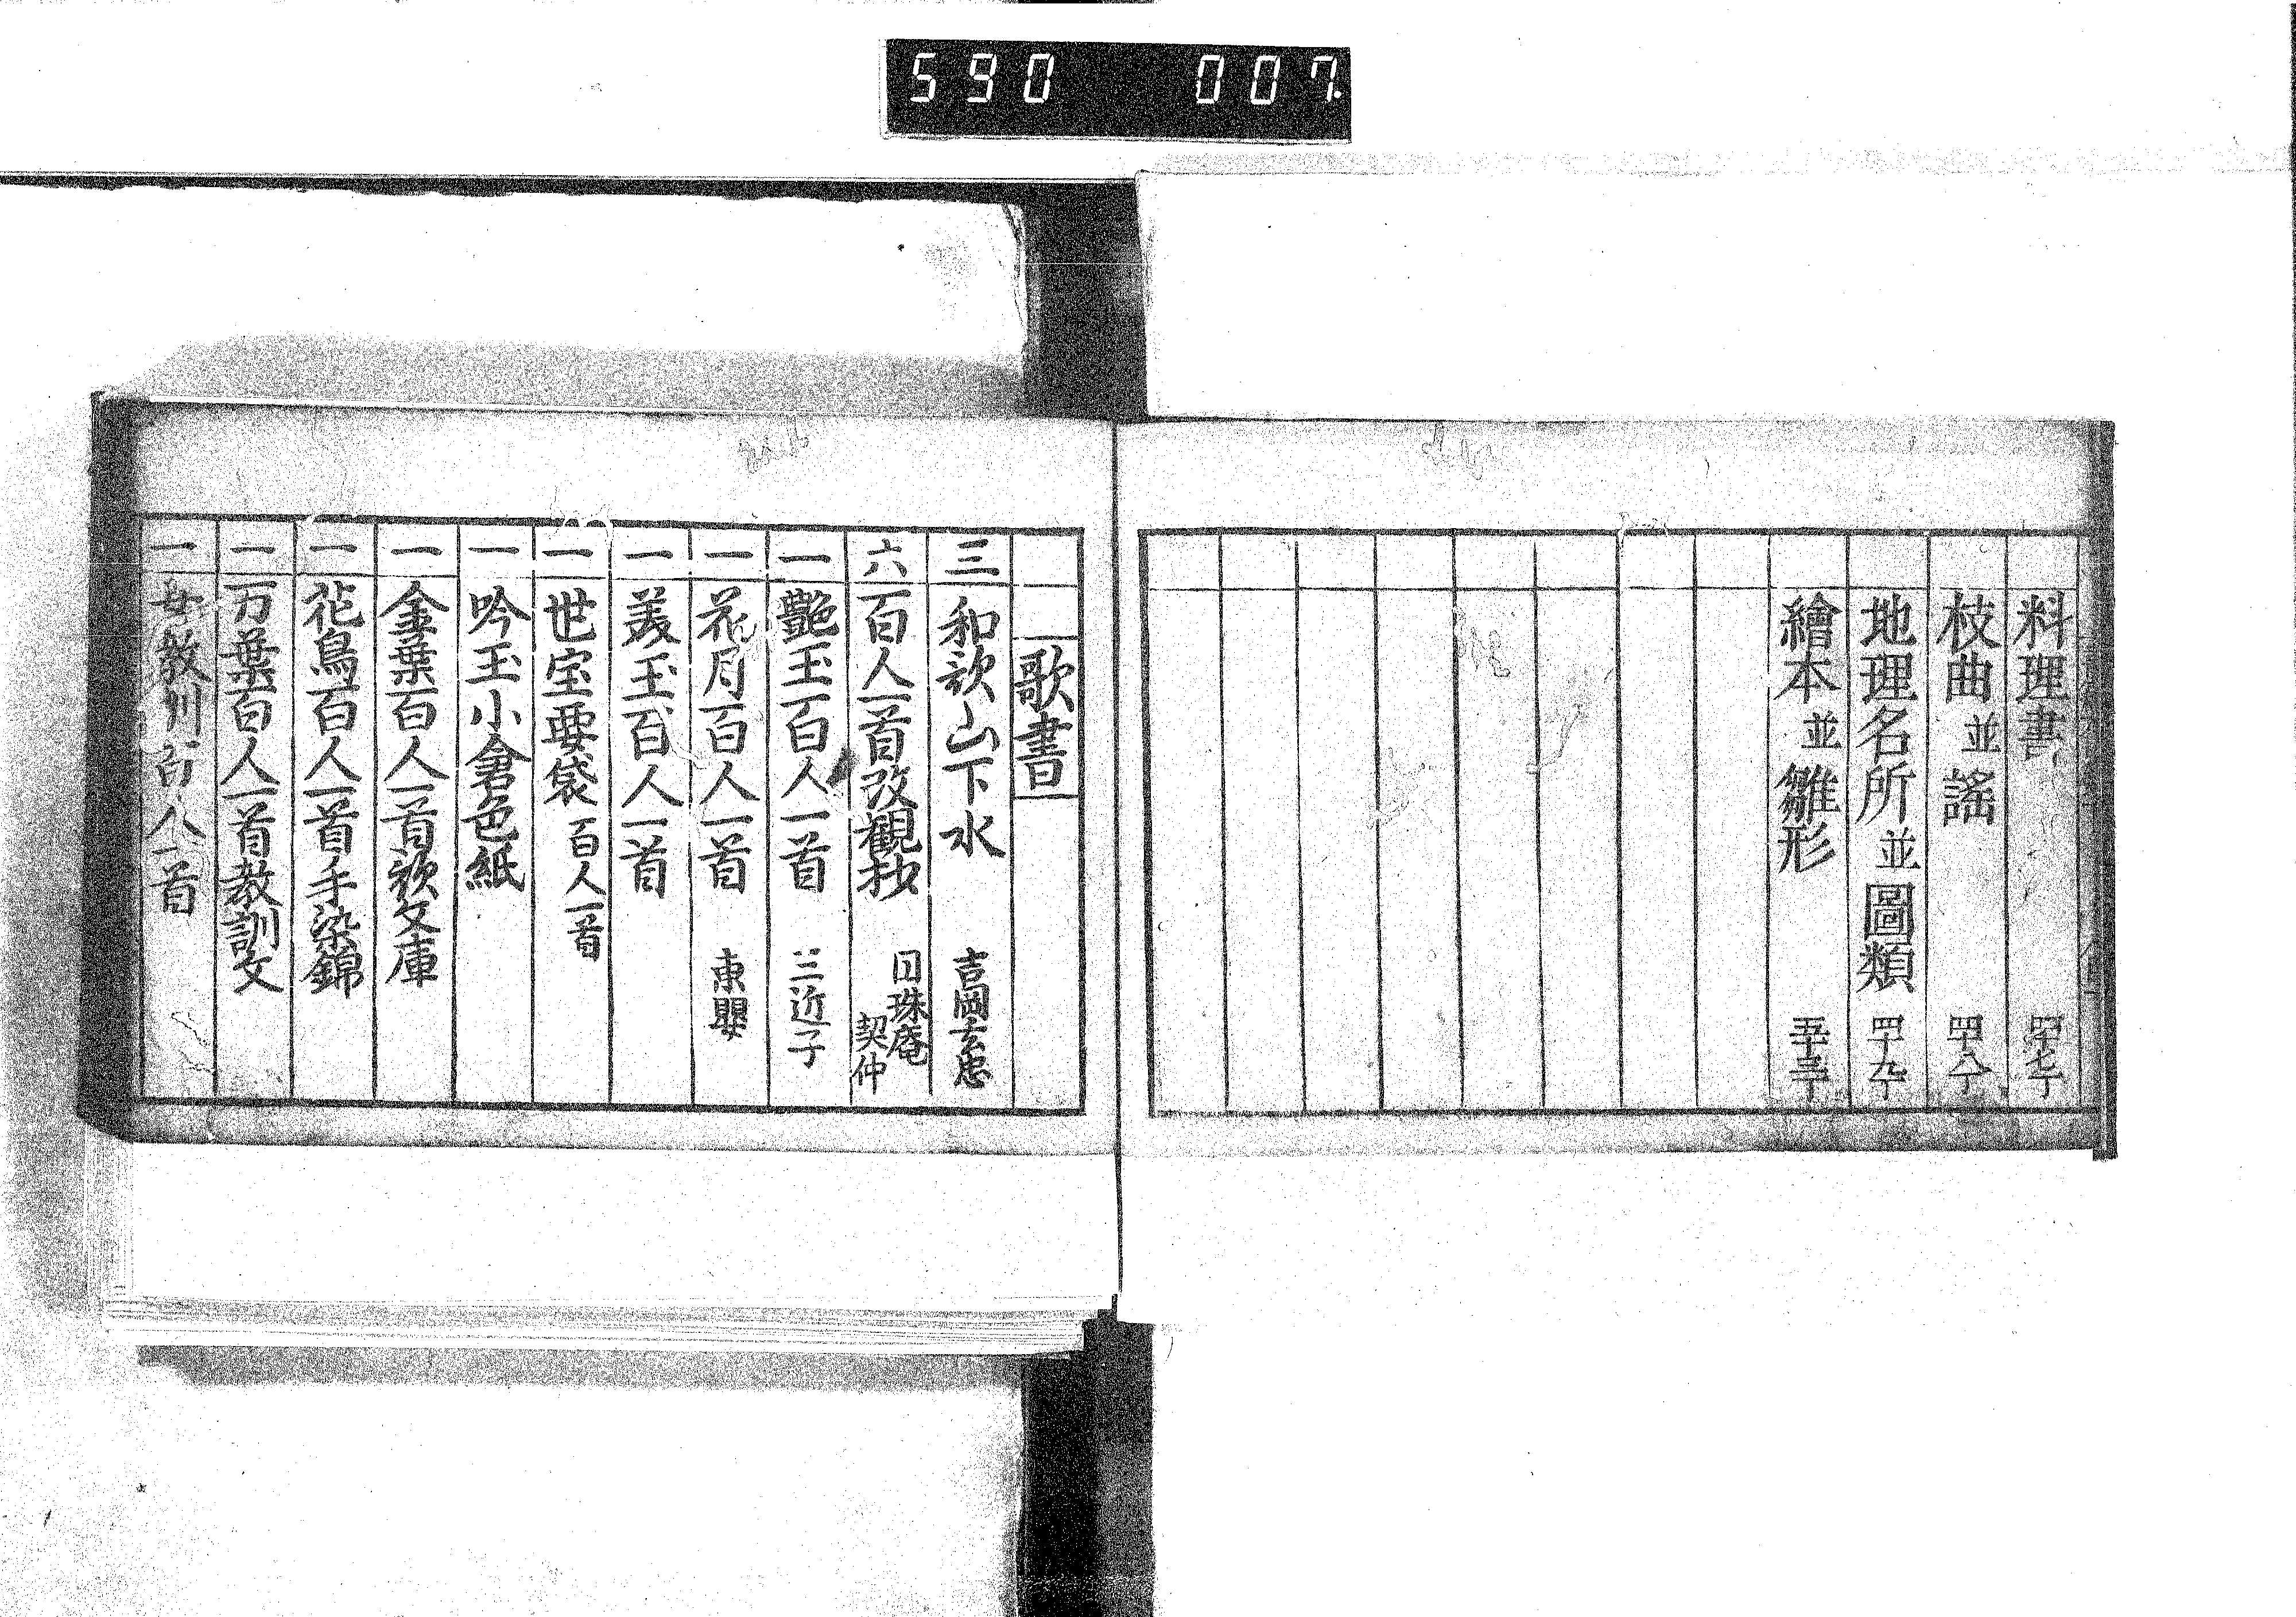 590 007
料理書 四十七丁
枝曲並謡 四十八丁
地理名所並圖類 四十九丁
繪本並雛形 五十三丁
歌書
三 和歌山下水 吉岡玄忠
六 百人一首改観抄 円珠庵 契仲
一 艶玉百人一首 三近子
一 花月百人一首 東嬰
一 美玉百人一首
一 世宝要袋 百人一首
一 吟玉小倉色紙
一 金葉百人一首歌文庫
一 花鳥百人一首手染錦
一 万葉百人一首教訓文
一 女教訓百人一首